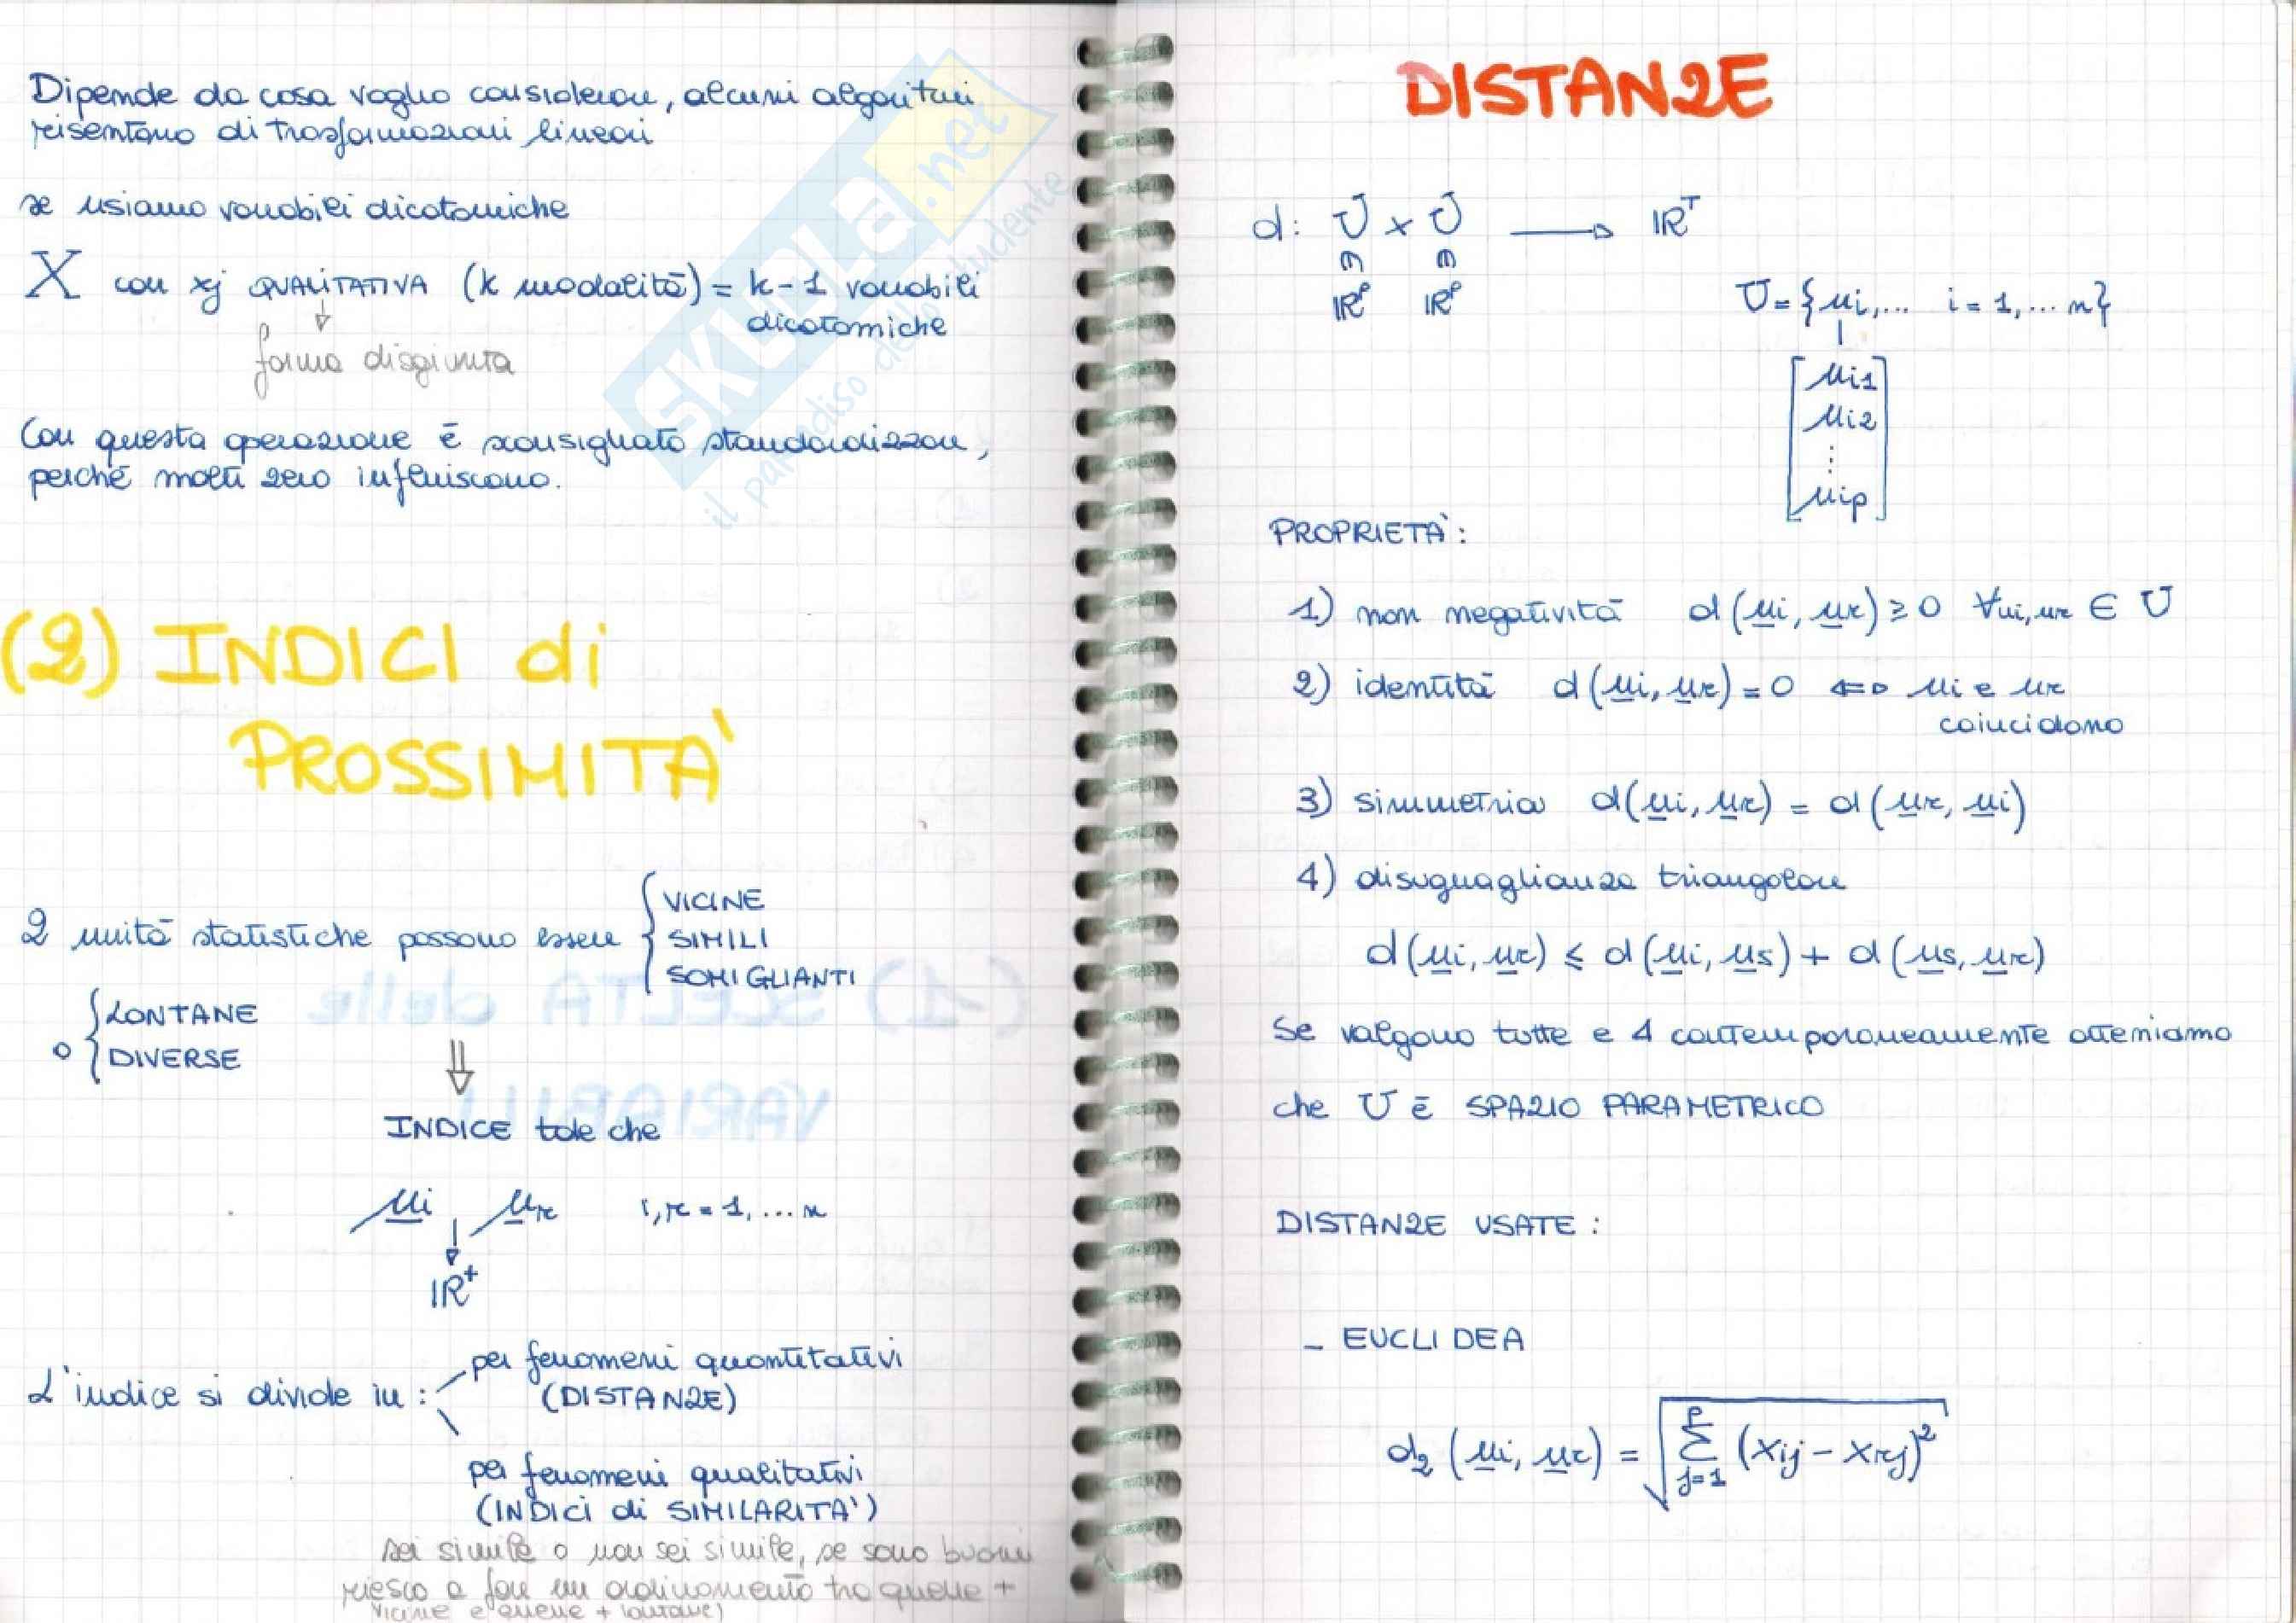 Dipende da cosa voglio considerare, alcuni algoritmi
risentono di trasformazioni lineari
se usiamo variabili dicotomiche
X con xj QUALITATIVA (k modalità) = k-1 variabili
dicotomiche
forma disgiunta
Con questa operazione è sconsigliato standardizzare,
perché molti zero influiscono.
(2) INDICI di
PROSSIMITA'
2 unità statistiche possono essere { VICINE
SIMILI
SOMIGLIANTI
o { LONTANE
DIVERSE
⇓
INDICE tale che
ui ur i,r = 1, ... n
↓
IR+
L'indice si divide in :
per fenomeni quantitativi
(DISTANZE)
per fenomeni qualitativi
(INDICI di SIMILARITA')
sei simile o non sei simile, se sono buoni
riesco a fare un ordinamento tra quelle +
vicine e quelle + lontane)
SKUOLA.net
il paradiso dello studente
DISTANZE
d: U x U → IR+
IRᵖ IRᵖ
U = {ui, ... i = 1, ... n}
[ui1
ui2
⋮
uip]
PROPRIETA':
1) non negatività d(ui, ur) ≥ 0 ∀ui,ur ∈ U
2) identità d(ui, ur) = 0 ⇔ ui e ur
coincidono
3) simmetria d(ui, ur) = d(ur, ui)
4) disuguaglianza triangolare
d(ui, ur) ≤ d(ui, us) + d(us, ur)
Se valgono tutte e 4 contemporaneamente otteniamo
che U è SPAZIO PARAMETRICO
DISTANZE USATE :
- EUCLIDEA
d₂ (ui, ur) = √(Σ_{j=1}^{p} (xij - xrj)²)